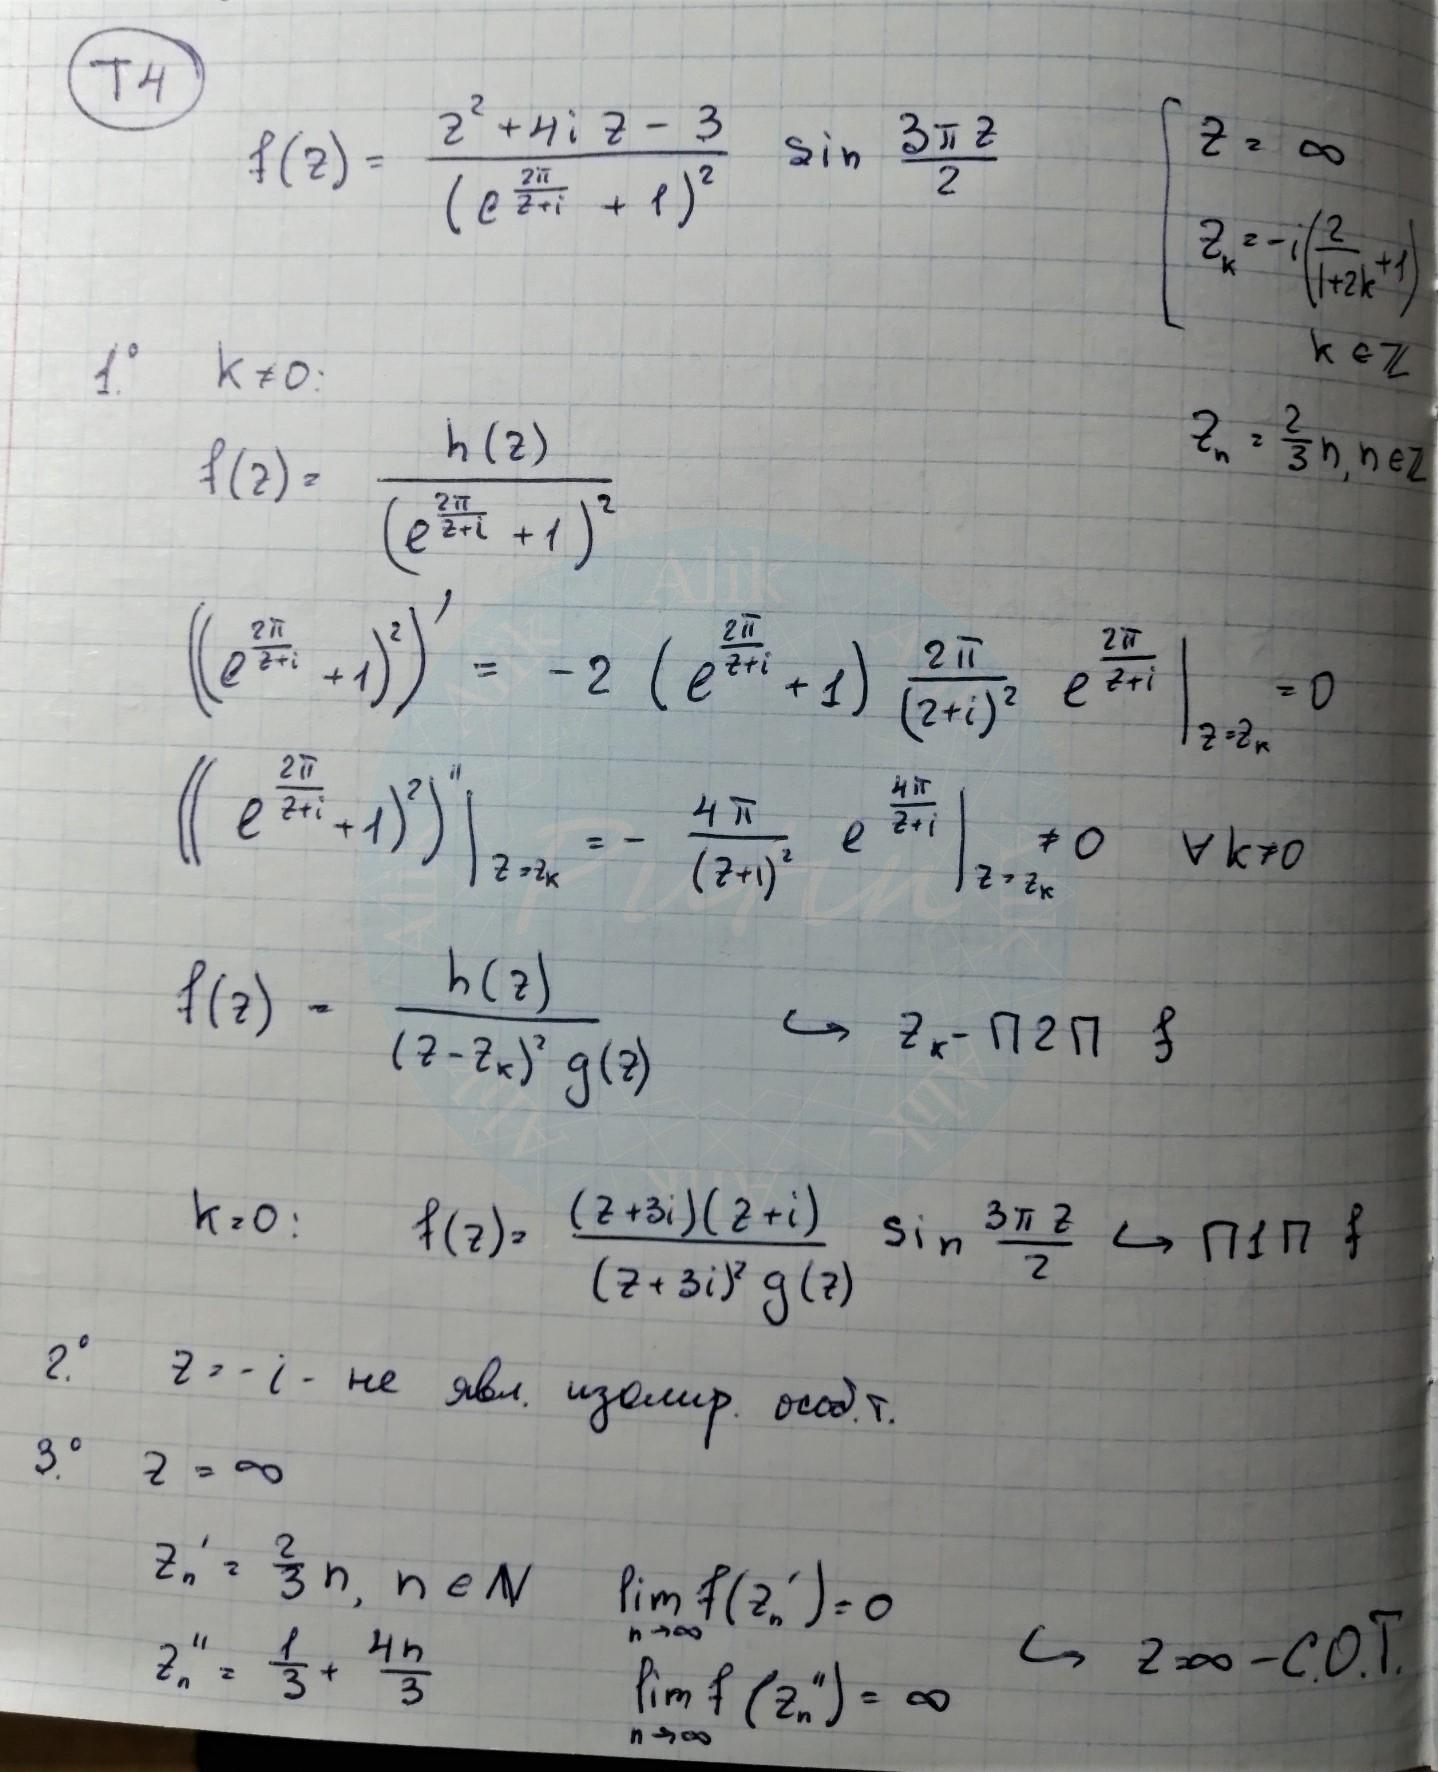 T4
f(z) = \frac{z^2 + 4i z - 3}{(e^{\frac{2π}{z+i}} + 1)^2} sin \frac{3πz}{2}
[ z = ∞
z_k = -i(\frac{2}{1+2k} + 1)
k ∈ ℤ
z_n = \frac{2}{3} n, n ∈ ℤ
1.° k ≠ 0:
f(z) = \frac{h(z)}{(e^{\frac{2π}{z+i}} + 1)^2}
((e^{\frac{2π}{z+i}} + 1)^2)' = -2 (e^{\frac{2π}{z+i}} + 1) \frac{2π}{(z+i)^2} e^{\frac{2π}{z+i}} |_{z=z_k} = 0
((e^{\frac{2π}{z+i}} + 1)^2)'' |_{z=z_k} = - \frac{4π}{(z+i)^2} e^{\frac{4π}{z+i}} |_{z=z_k} ≠ 0 ∀ k ≠ 0
f(z) = \frac{h(z)}{(z-z_k)^2 g(z)} ↪ z_k - П2П f
k=0: f(z) = \frac{(z+3i)(z+i)}{(z+3i)^2 g(z)} sin \frac{3πz}{2} ↪ П1П f
2.° z = -i - не явл. изолир. особ.т.
3.° z = ∞
z_n' = \frac{2}{3} n, n ∈ ℕ lim_{n→∞} f(z_n') = 0
z_n'' = \frac{1}{3} + \frac{4n}{3} lim_{n→∞} f(z_n'') = ∞ ↪ z=∞ - С.О.Т.
Alik
Alik
Alik
Pufin
Alik
Alik
Alik
Alik